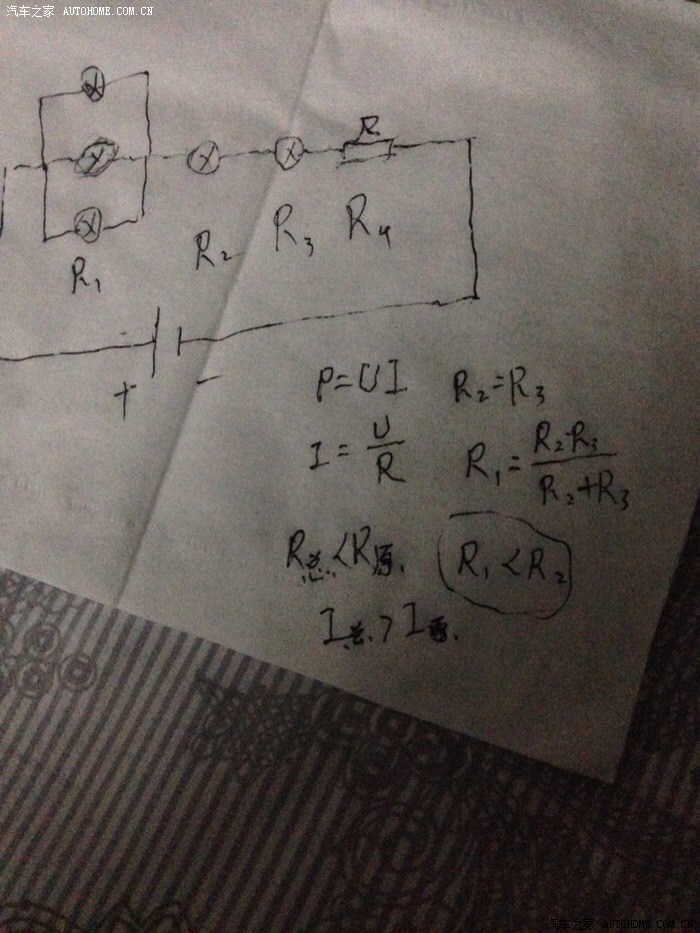 汽车之家 AUTOHOME.COM.CN
R
R₁ R₂ R₃ R₄
+ −
P=UI R₂=R₃
I = U/R R₁ = R₂·R₃/R₂+R₃
R总<R原. R₁<R₂
I总>I原.
汽车之家 AUTOHOME.COM.CN